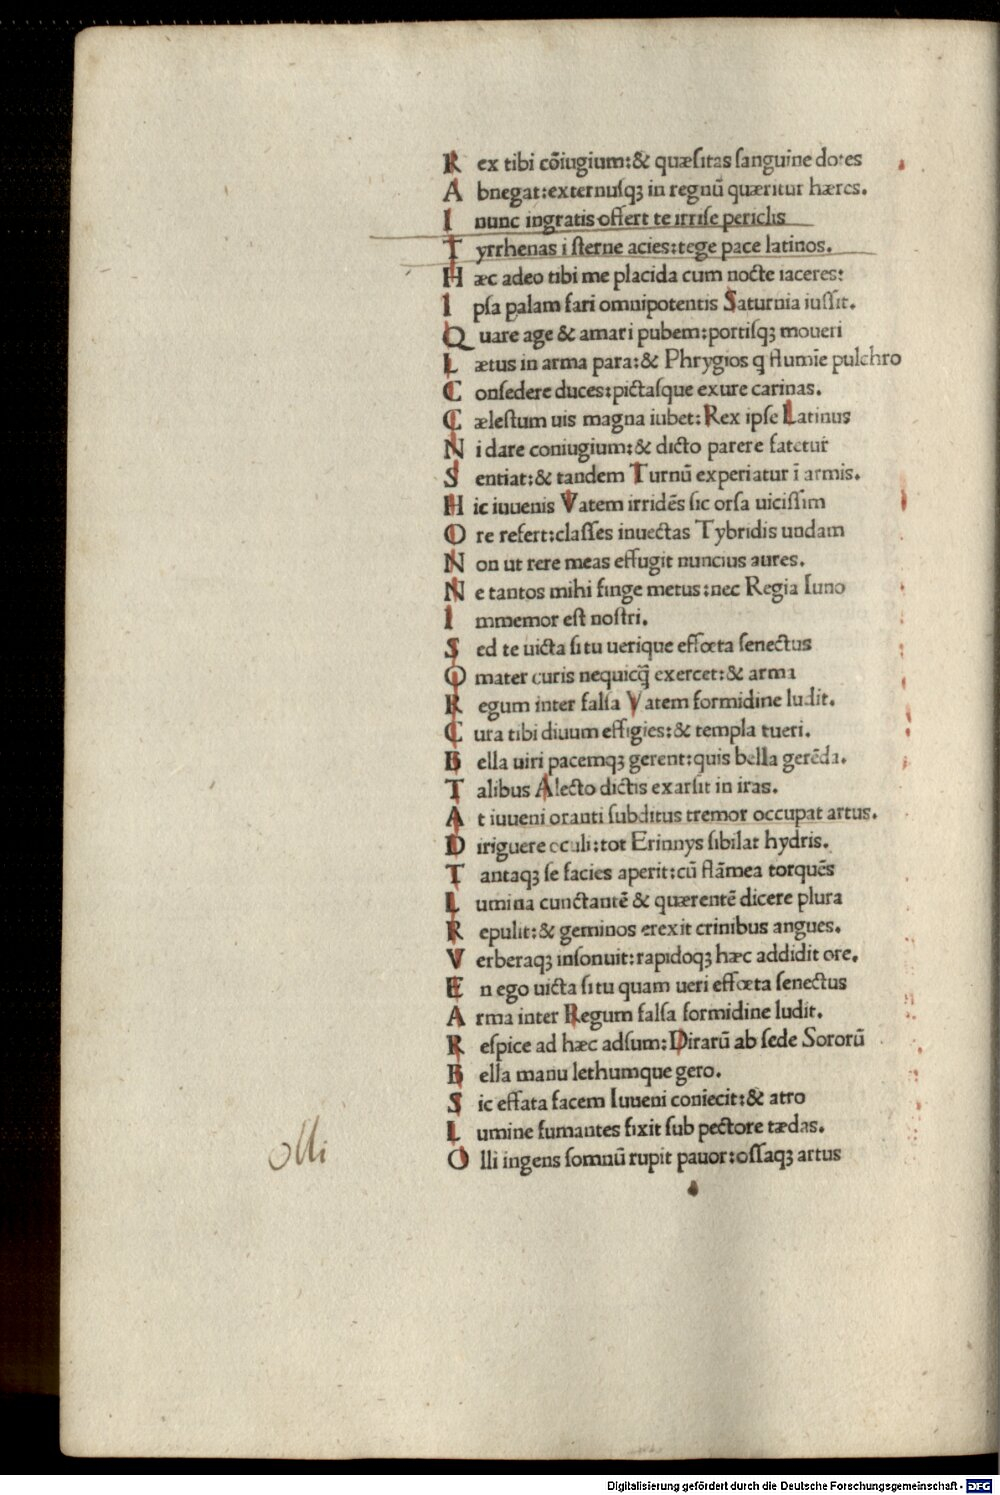 R ex tibi cōiugium:& quæsitas sanguine dotes
A bnegat:externusqꝫ in regnū quæritur hæres.
I nunc ingratis offert te irrise periclis
T yrrhenas i sterne acies:tege pace latinos.
H æc adeo tibi me placida cum nocte iaceres:
I psa palam fari omnipotentis Saturnia iussit.
Q uare age & amari pubem:portisqꝫ moueri
L ætus in arma para:& Phrygios q flumīe pulchro
C onsedere duces:pictasque exure carinas.
C ælestum uis magna iubet:Rex ipse Latinus
N i dare coniugium:& dicto parere fatetur
S entiat:& tandem Turnū experiatur ī armis.
H ic iuuenis Vatem irridēs sic orsa uicissim
O re refert:classes inuectas Tybridis undam
N on ut rere meas effugit nuncius aures.
N e tantos mihi finge metus:nec Regia Iuno
I mmemor est nostri.
S ed te uicta situ uerique effœta senectus
O mater curis nequicq̃ exercet:& arma
R egum inter falsa Vatem formidine ludit.
C ura tibi diuum effigies:& templa tueri.
B ella uiri pacemqꝫ gerent:quis bella gerēda.
T alibus Alecto dictis exarsit in iras.
A t iuueni oranti subditus tremor occupat artus.
D iriguere oculi:tot Erinnys sibilat hydris.
T antaqꝫ se facies aperit:cū flāmea torquēs
L umina cunctantē & quærentē dicere plura
R epulit:& geminos erexit crinibus angues.
V erberaqꝫ insonuit:rapidoqꝫ hæc addidit ore.
E n ego uicta situ quam ueri effœta senectus
A rma inter Regum falsa formidine ludit.
R espice ad hæc adsum:Dirarū ab sede Sororū
B ella manu lethumque gero.
S ic effata facem Iuueni coniecit:& atro
L umine fumantes fixit sub pectore tædas.
O lli ingens somnū rupit pauor:ossaqꝫ artus
olli
Digitalisierung gefördert durch die Deutsche Forschungsgemeinschaft - DFG